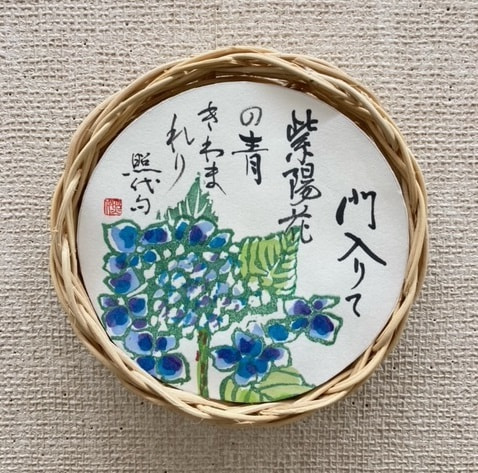 門入りて
紫陽花
の青
きわま
れり
照代句